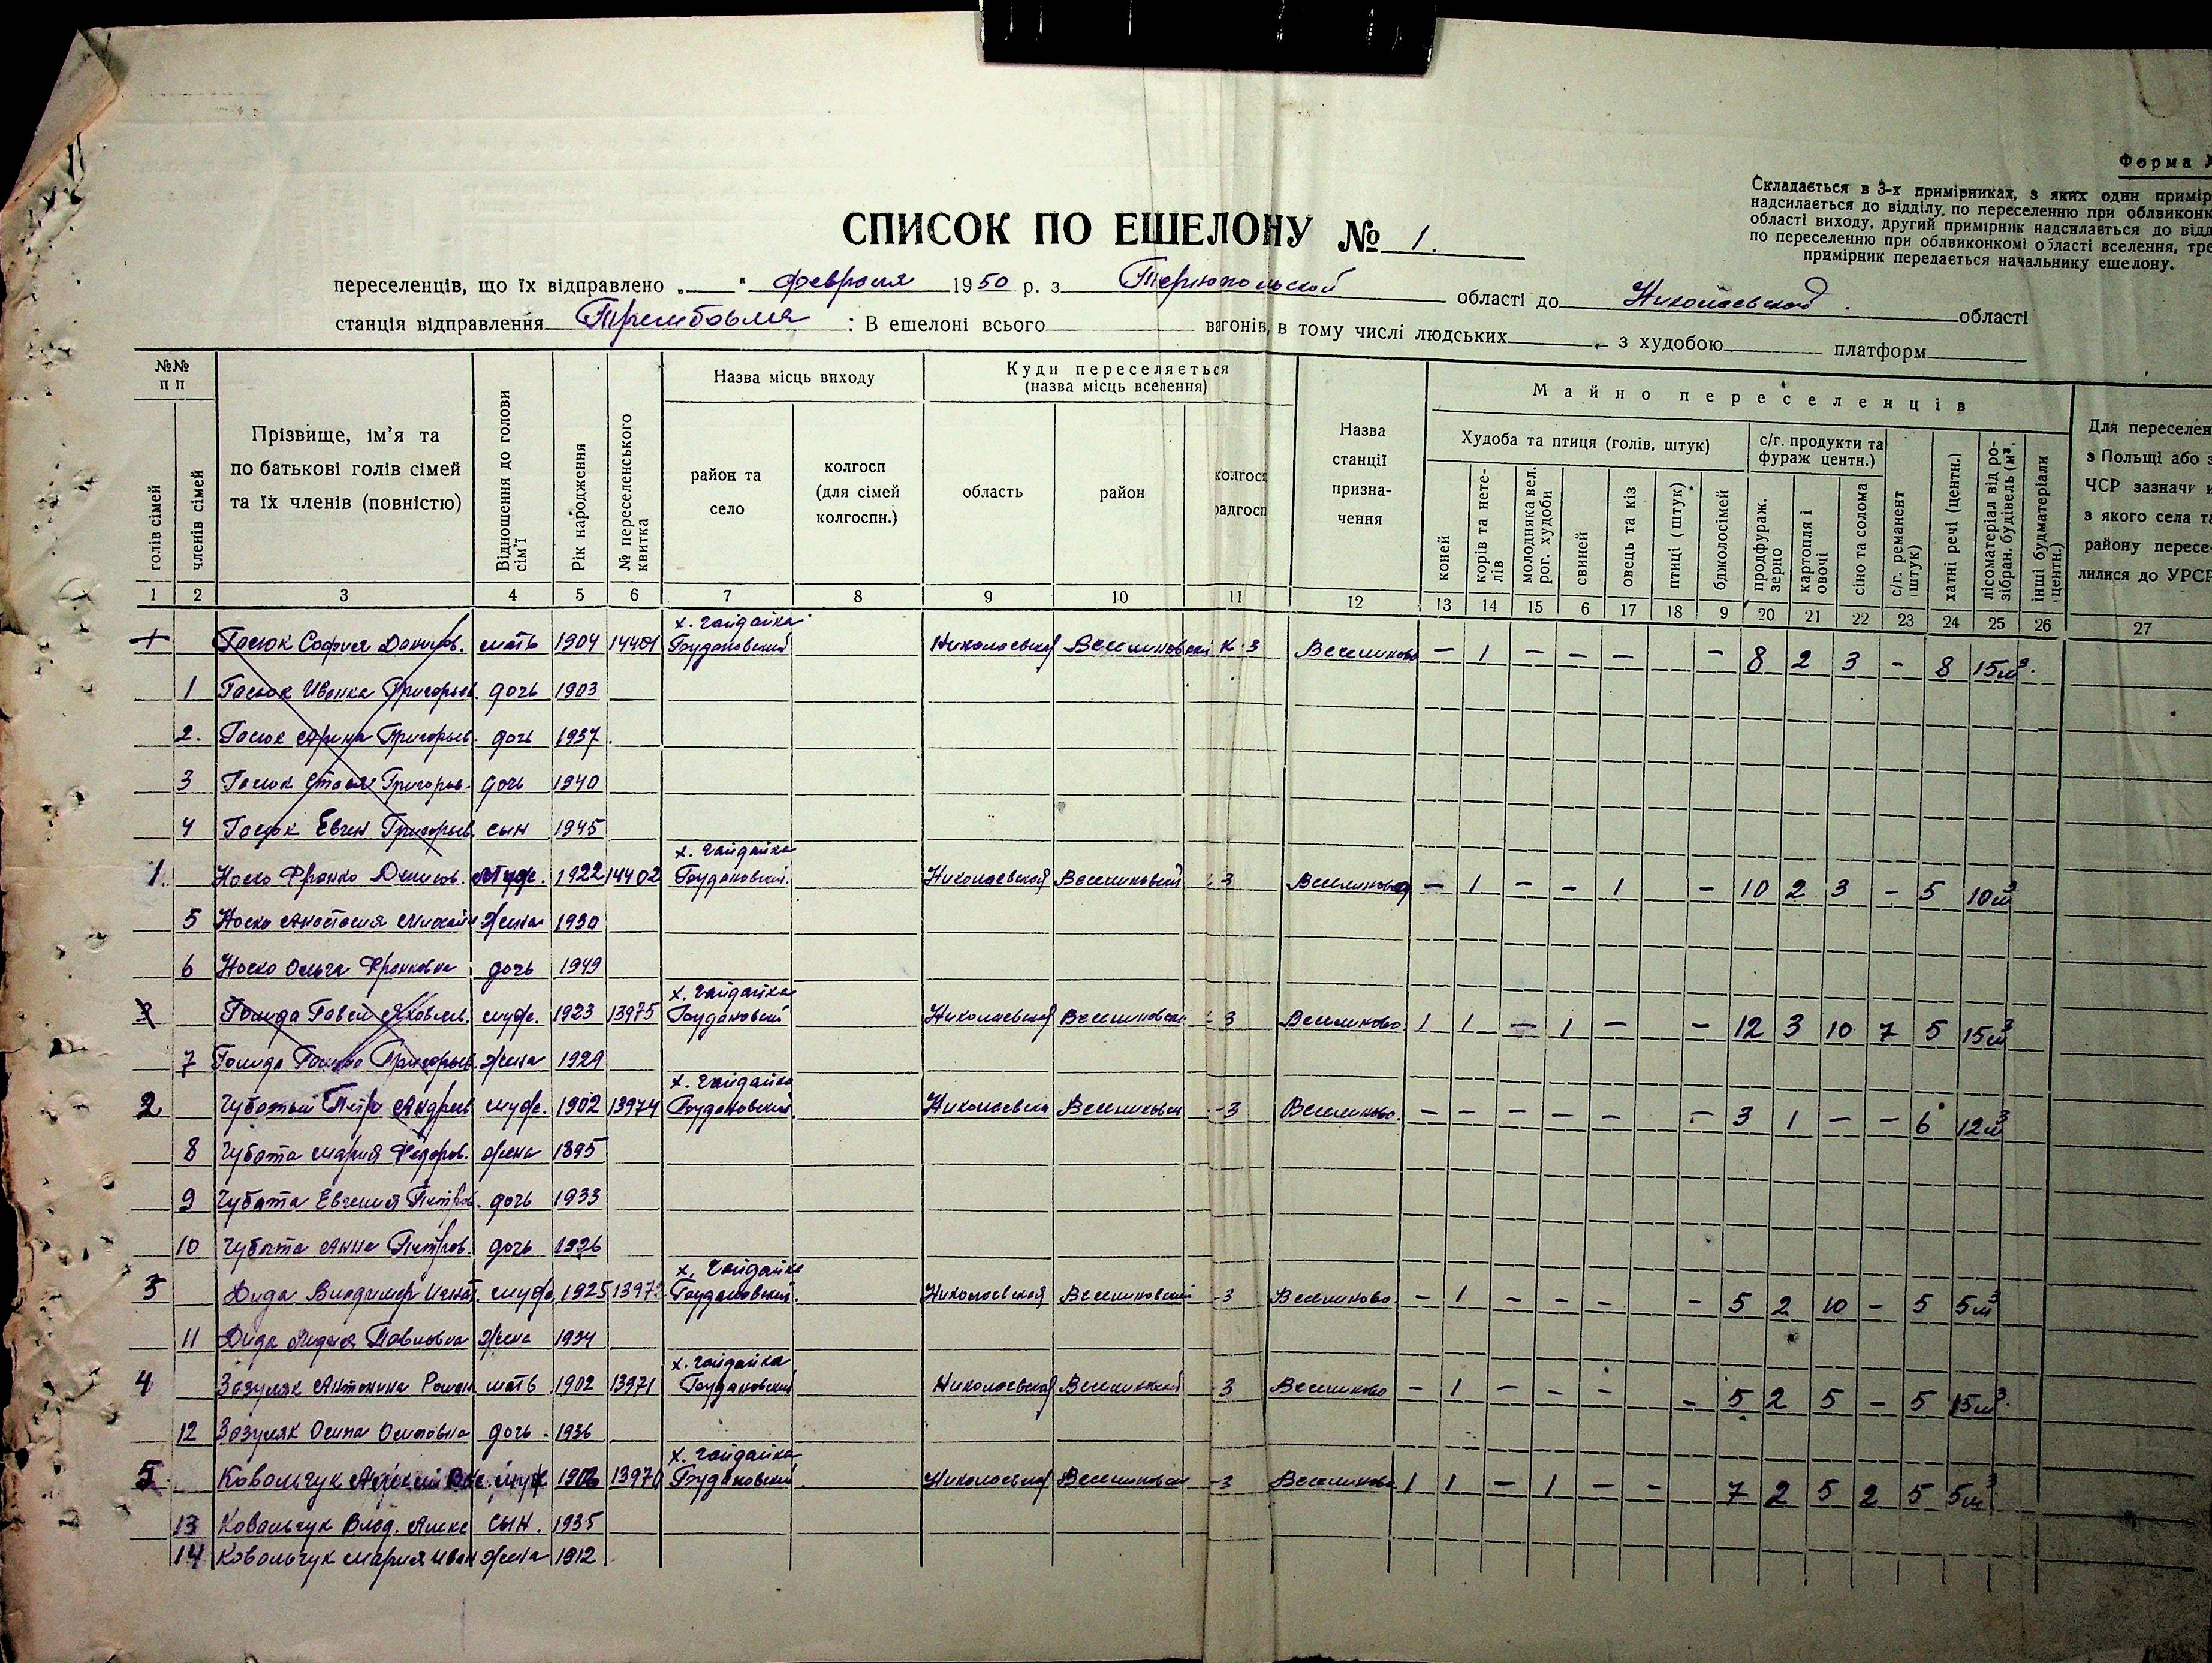 Форма
Складається в 3-х примірниках, з яких один примір
надсилається до відділу по переселенню при облвиконк
області виходу, другий примірник надсилається до відд
по переселенню при облвиконкомі області вселення, тре
примірник передається начальнику ешелону.
СПИСОК ПО ЕШЕЛОНУ № 1.
переселенців, що їх відправлено „ “ февраля 1950 р. з Тернопольской області до Николаевской області
станція відправлення Трембовля : В ешелоні всього вагонів, в тому числі людських з худобою платформ
№№ п п
голів сімей
членів сімей
Прізвище, ім'я та по батькові голів сімей та їх членів (повністю)
Відношення до голови сім'ї
Рік народження
№ переселенського квитка
Назва місць виходу
район та село
колгосп (для сімей колгоспн.)
Куди переселяється (назва місць вселення)
область
район
колгосп радгосп
Назва станції призначення
Майно переселенців
Худоба та птиця (голів, штук)
коней
корів та нетелів
молодняка вел. рог. худоби
свиней
овець та кіз
птиці (штук)
бджолосімей
с/г. продукти та фураж центн.)
продфураж. зерно
картопля і овочі
сіно та солома
с/г. реманент (штук)
хатні речі (центн.)
лісоматеріал від розібран. будівель (м³
інші будматеріали (центн.)
Для переселен
з Польщі або з
ЧСР зазначи
з якого села та
району пересе-
лилися до УРСР
1 2 3 4 5 6 7 8 9 10 11 12 13 14 15 6 17 18 9 20 21 22 23 24 25 26 27
х. Гайдайка
1 Гасюк София Данилов. мать 1904 14401 Будановский Николаевская Веселиновский К-3 Веселиново – 1 – – – – 8 2 3 – 8 15м³.
1 Гасюк Иванка Григорьев. дочь 1903
2. Гасюк Арина Григорьев. дочь 1937.
3 Гасюк Стасия Григорьев. дочь 1940
4 Гасюк Евген Григорьев сын 1945
х. Гайдайка
1. Носко Франко Денисов. муж. 1922 14402 Будановский. Николаевской Веселиновский 3 Веселиново – 1 – – 1 – 10 2 3 – 5 10м³
5 Носко Анастасия Михайл жена 1930
6 Носко Ольга Франковна дочь 1949
х. Гайдайка
муж. 1923 13975 Будановский Николаевской Веселиновски 3 Веселиново. 1 1 – 1 – – 12 3 10 7 5 15м³
7 Григорьев. жена 1929
х. Гайдайка
2 Чубатый Петро Андреев муж. 1902 13974 Будановский Николаевска Веселиновск -3 Веселиново. – – – – – – 3 1 – – 6 12м³
8 Чубата Мария Федоров. жена 1895
9 Чубата Евгения Петров. дочь 1933
10 Чубата Анна Петров. дочь 1936
х. Гайдайка
3 Дида Владимир Игнат. муж. 1925 1397 Будановский. Николаевская Веселиновский -3 Веселиново. – 1 – – – – 5 2 10 – 5 5м³
11 Дида Лидия Павловна жена 1934
х. Гайдайка
4 Зазуляк Антонина Роман мать 1902 13971 Будановский Николаевская Веселиновский -3 Веселиново – 1 – – – – 5 2 5 – 5 15м³.
12 Зазуляк Осипа Осиповна дочь 1936
х. Гайдайка
5. Ковальчук муж 1906 13970 Будановский Николаевской Веселиновски -3 Веселиново 1 1 – 1 – – 7 2 5 2 5 5м³
13 Ковальчук Влад. Алекс сын. 1935
14 Ковальчук Мария Иван жена 1912